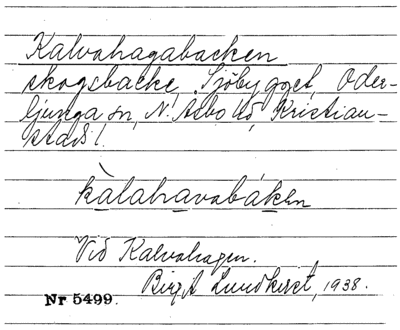 Kalvahagabacken
skogsbacke, Sjöbygget, Oder-
ljunga sn, N. Åsbo hd, Kristian-
stads l.
kàlahavabáken
Vid Kalvahagen.
Birgit Lundkvist, 1938.
Nr 5499.